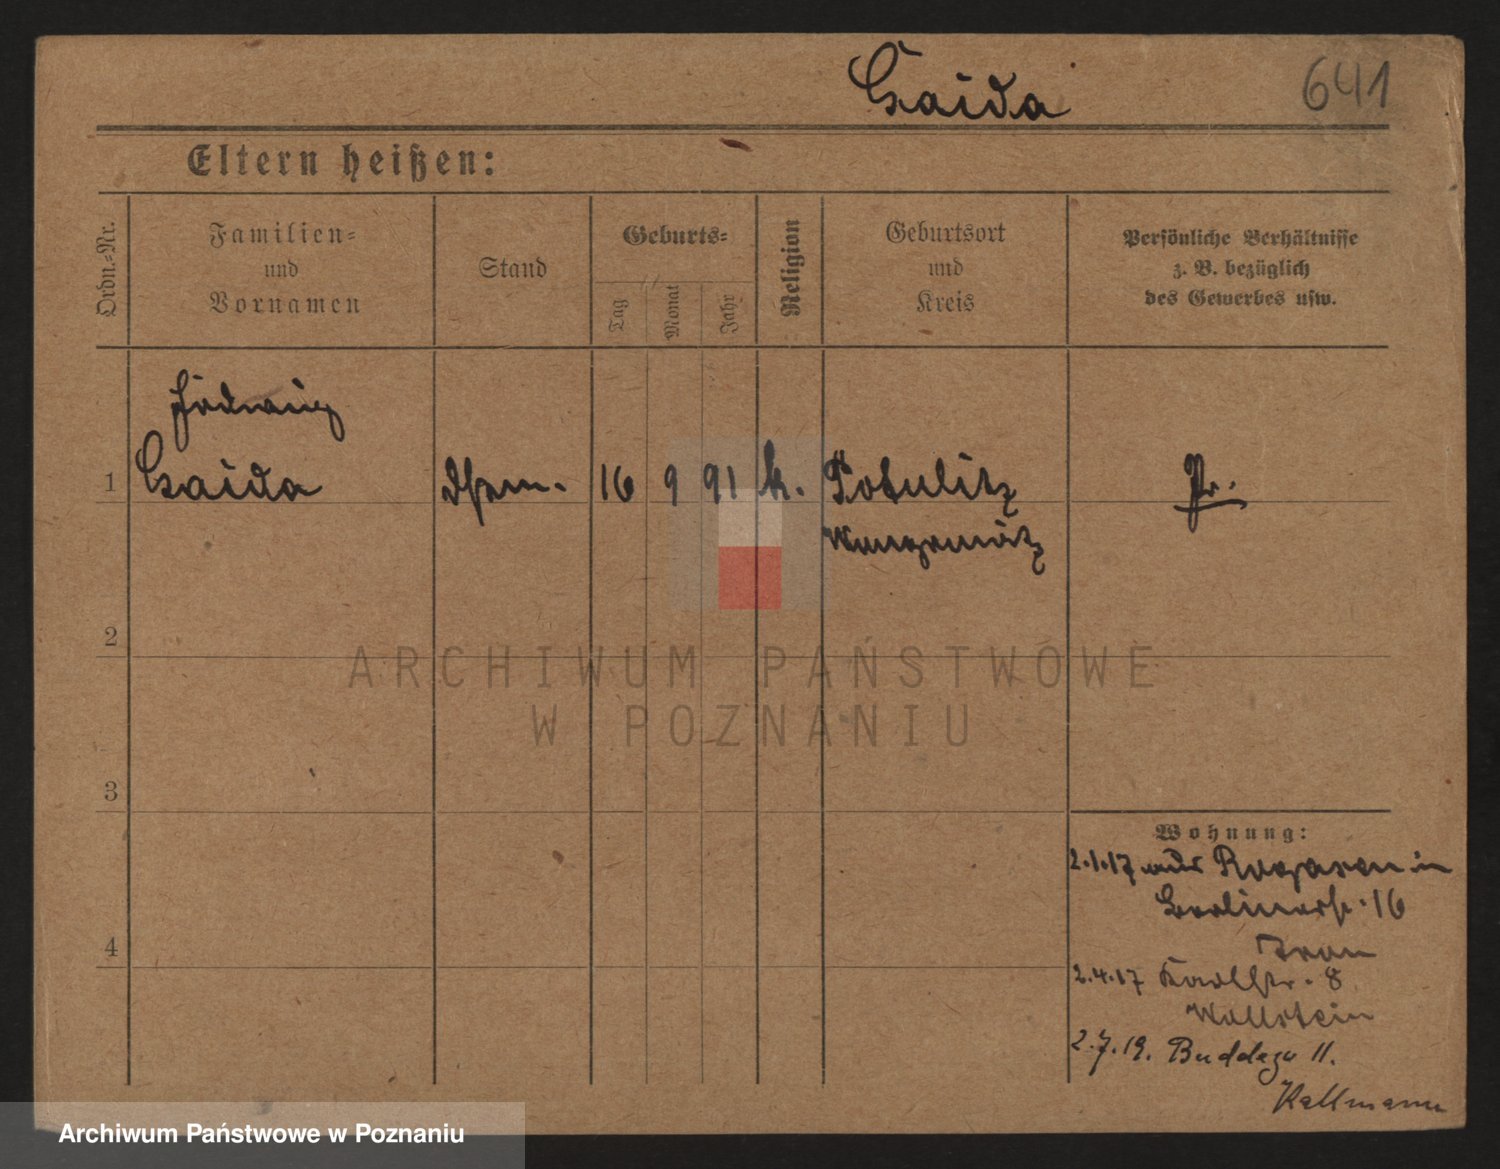 Gaida
641
Eltern heißen:
Ordn.-Nr.
Familien-
und
Vornamen
Stand
Geburts-
Tag
Monat
Jahr
Religion
Geburtsort
und
Kreis
Persönliche Verhältnisse
z. B. bezüglich
des Gewerbes usw.
Hedwig
1 Gaida 16 9 91 k. Potulitz Pr.
Wongrowitz
2
3
4
Wohnung:
2.1.17 aus Rogasen in
Berlinerstr. 16
2.4.17 Karlstr. 8
Wollstein
2.7.19. Buddego 11.
Kallmann
ARCHIWUM PAŃSTWOWE
W POZNANIU
Archiwum Państwowe w Poznaniu